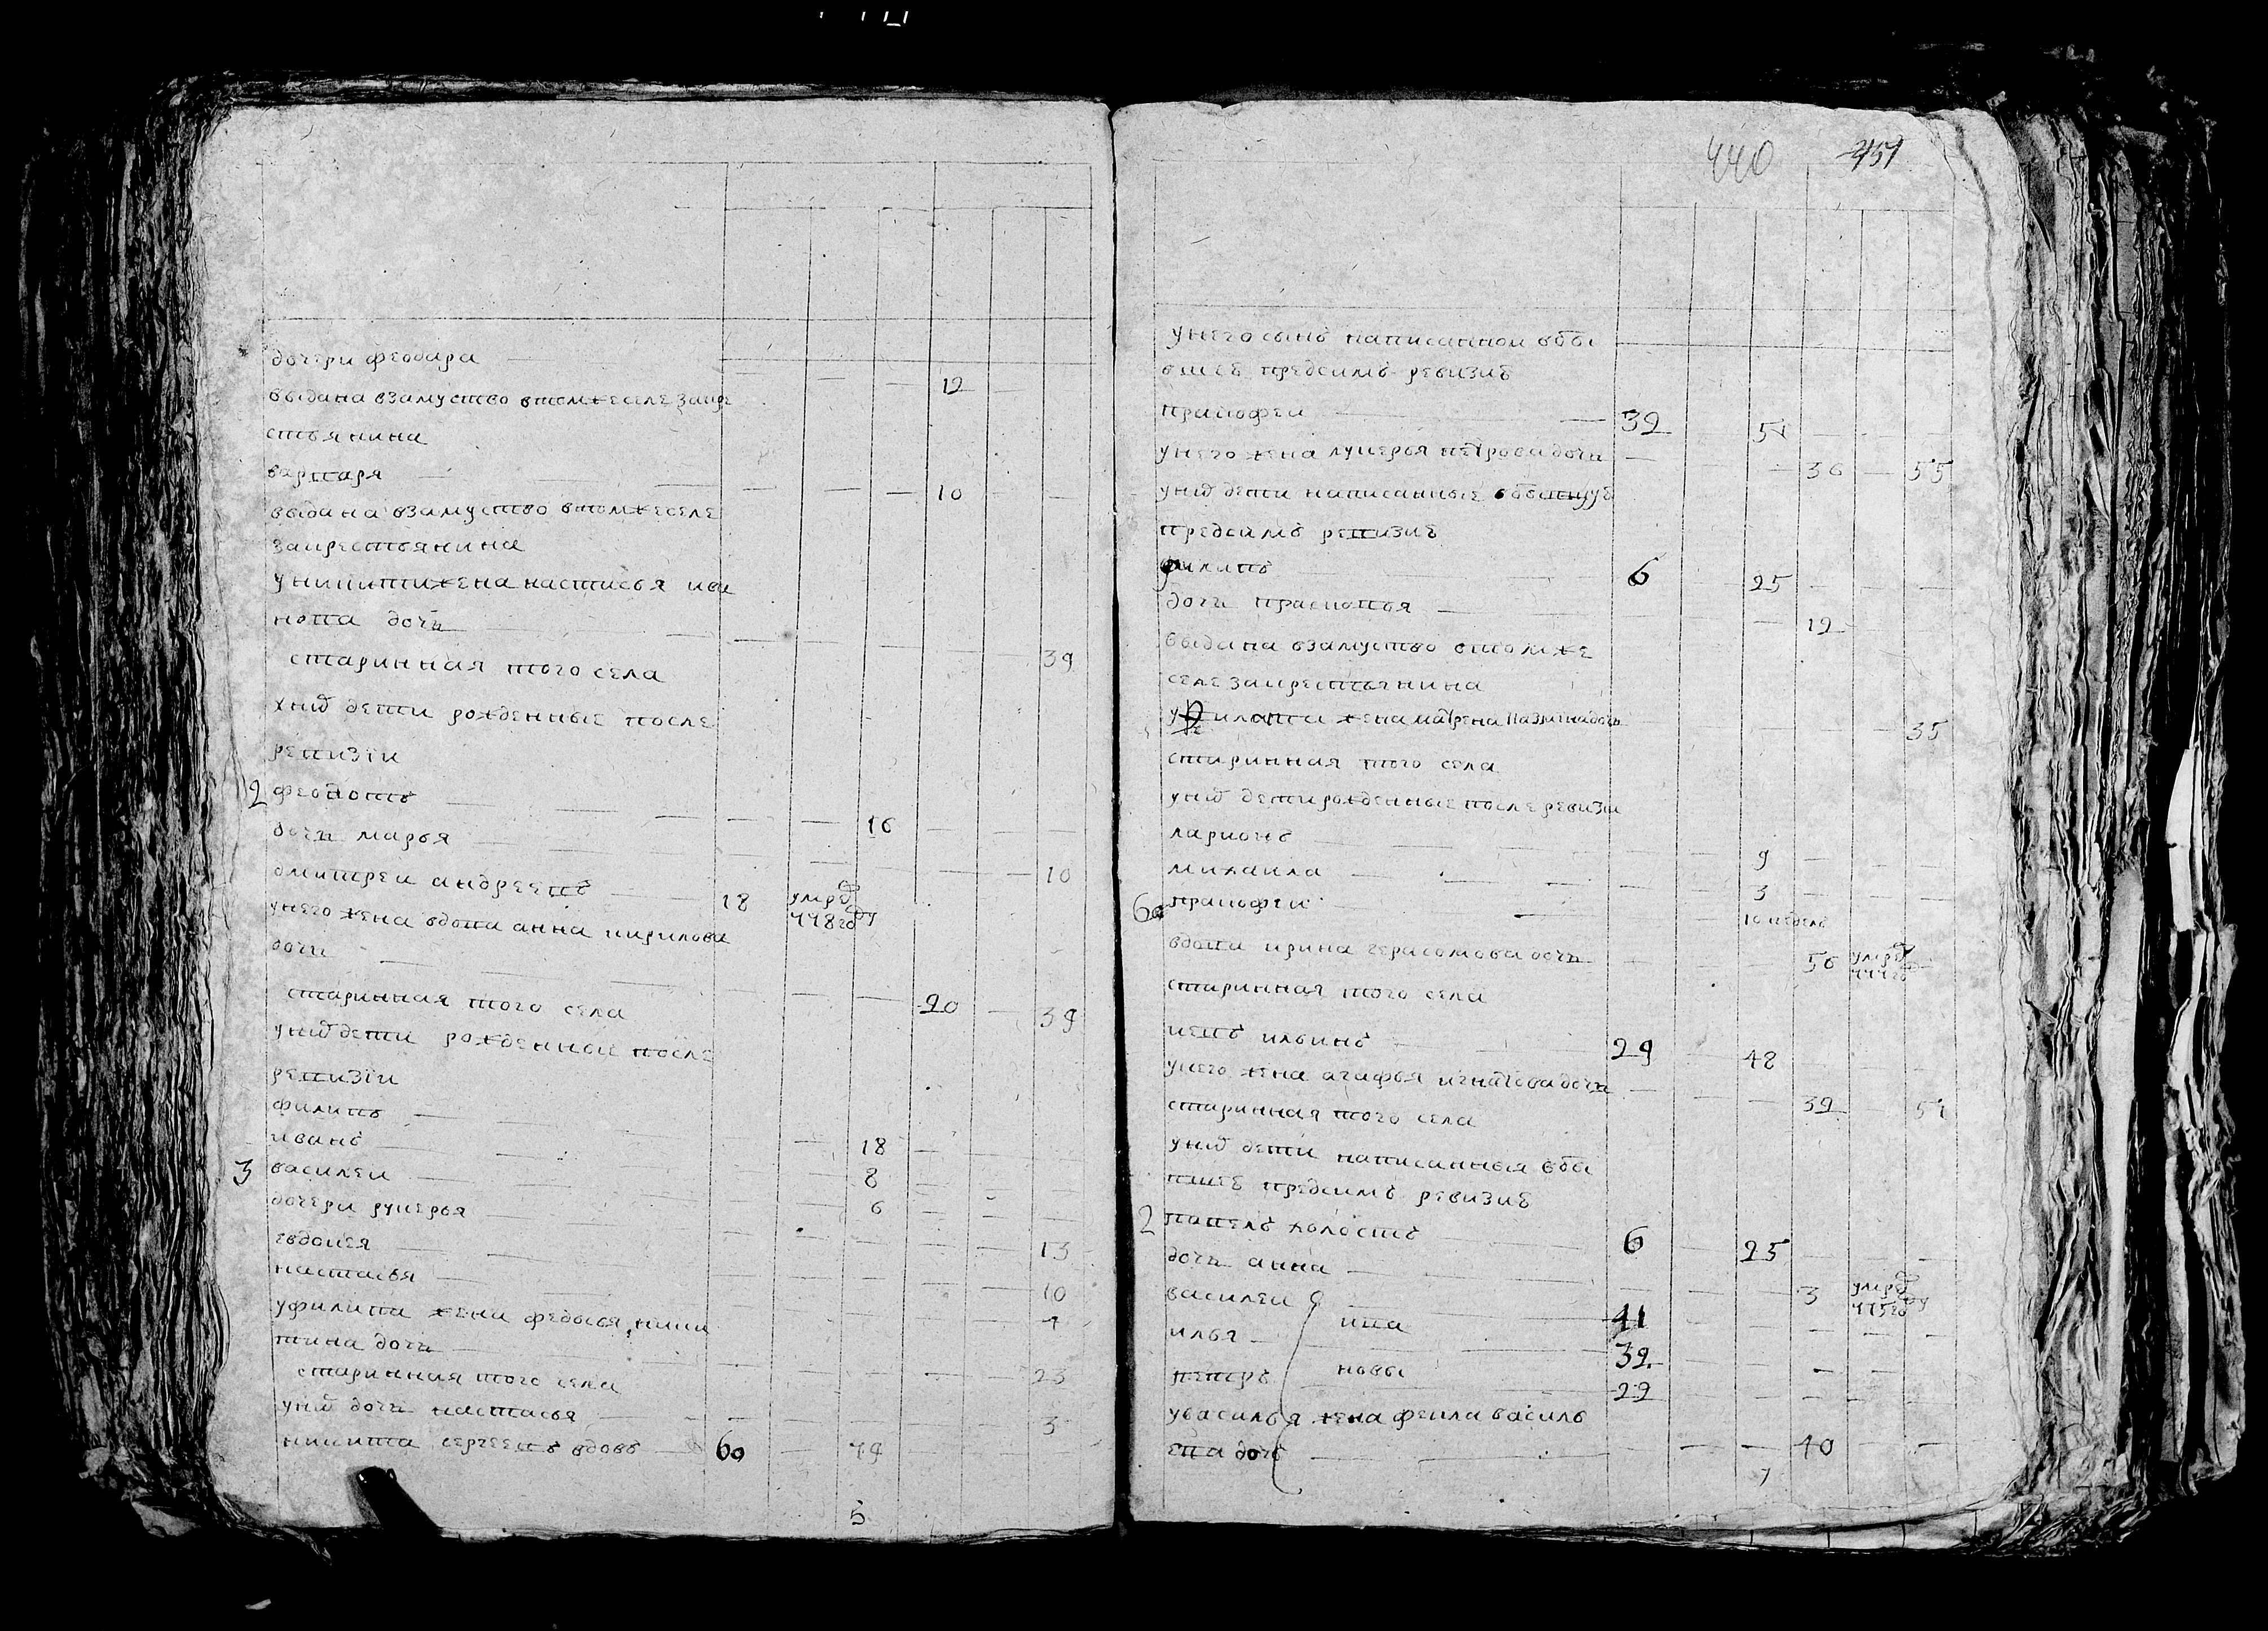 дочери феодара
12
выдана взамуство втомжеселе закре
стьянина
варвара
10
выдана взамуство втомжеселе
закрестьянина
уникиты жена настасья ива
нова дочь
39
старинная того села
у них дети рожденные после
ревизїи
2 феодотъ
16
дочь марья
10
дмитреи андреевъ 18 умре 778году
унего жена вдова анна кирилова
дочь
20 39
старинная того села
уних дети рожденные после
ревизїи
филипъ
18
иванъ
8
3 василеи
6
дочери лукерья
13
евдокея
10
настасья
7
уфилипа жена федосья ники
тина дочь
23
старинная того села
уних дочь настасья
3
никита сергеевъ вдовъ 60 79
5
440 451
унего сынъ написанной вбы
вшеѣ предсимъ ревизиѣ
пракофеи 39 57
унего жена лукерья петрова дочь
36 55
уних дети написанные вбывшуѣ
предсимъ ревизиѣ
филипъ 6 25
дочь прасковья
12
выдана взамуство втомже
селе закрестьянина
уфилипа жена матрена дочь
35
старинная того села
уних дети рожденные после ревизи
ларионъ
9
михаила
3
пракофеи
10 недель
вдова ирина герасомова дочь
56 умре 777го
старинная того села
левъ ильинъ 29 48
унего жена агафья игнатова дочь
39 57
старинная того села
уних дети написанныя вбы
вшеѣ предсимъ ревизиѣ
2 павелъ холостъ 6 25
дочь анна
3 умре 775году
василеи 41
ива
илья 39
новы
петръ 22
увасилья жена фекла василь
ева дочь
40
7